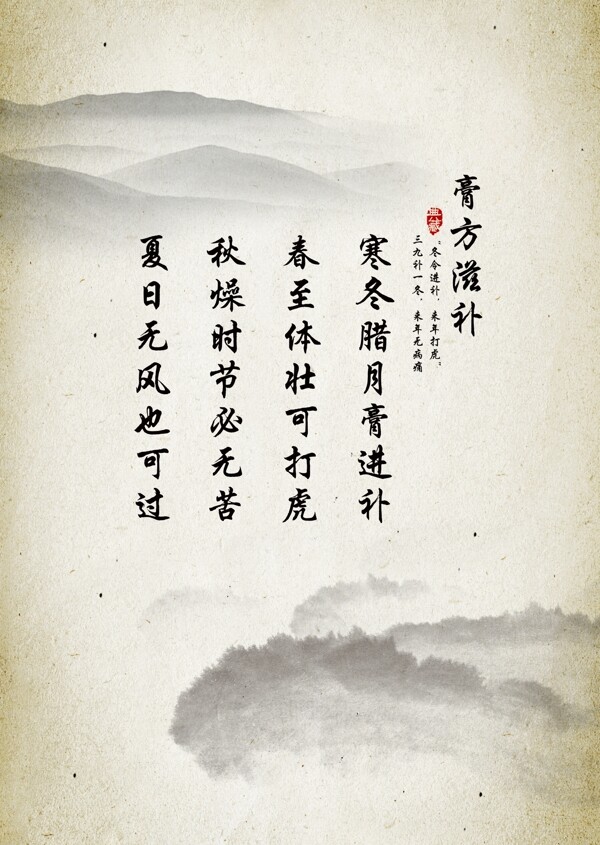 膏方滋补
典藏
“冬令进补，来年打虎”
三九补一冬，来年无病痛
寒冬腊月膏进补
春至体壮可打虎
秋燥时节必无苦
夏日无风也可过